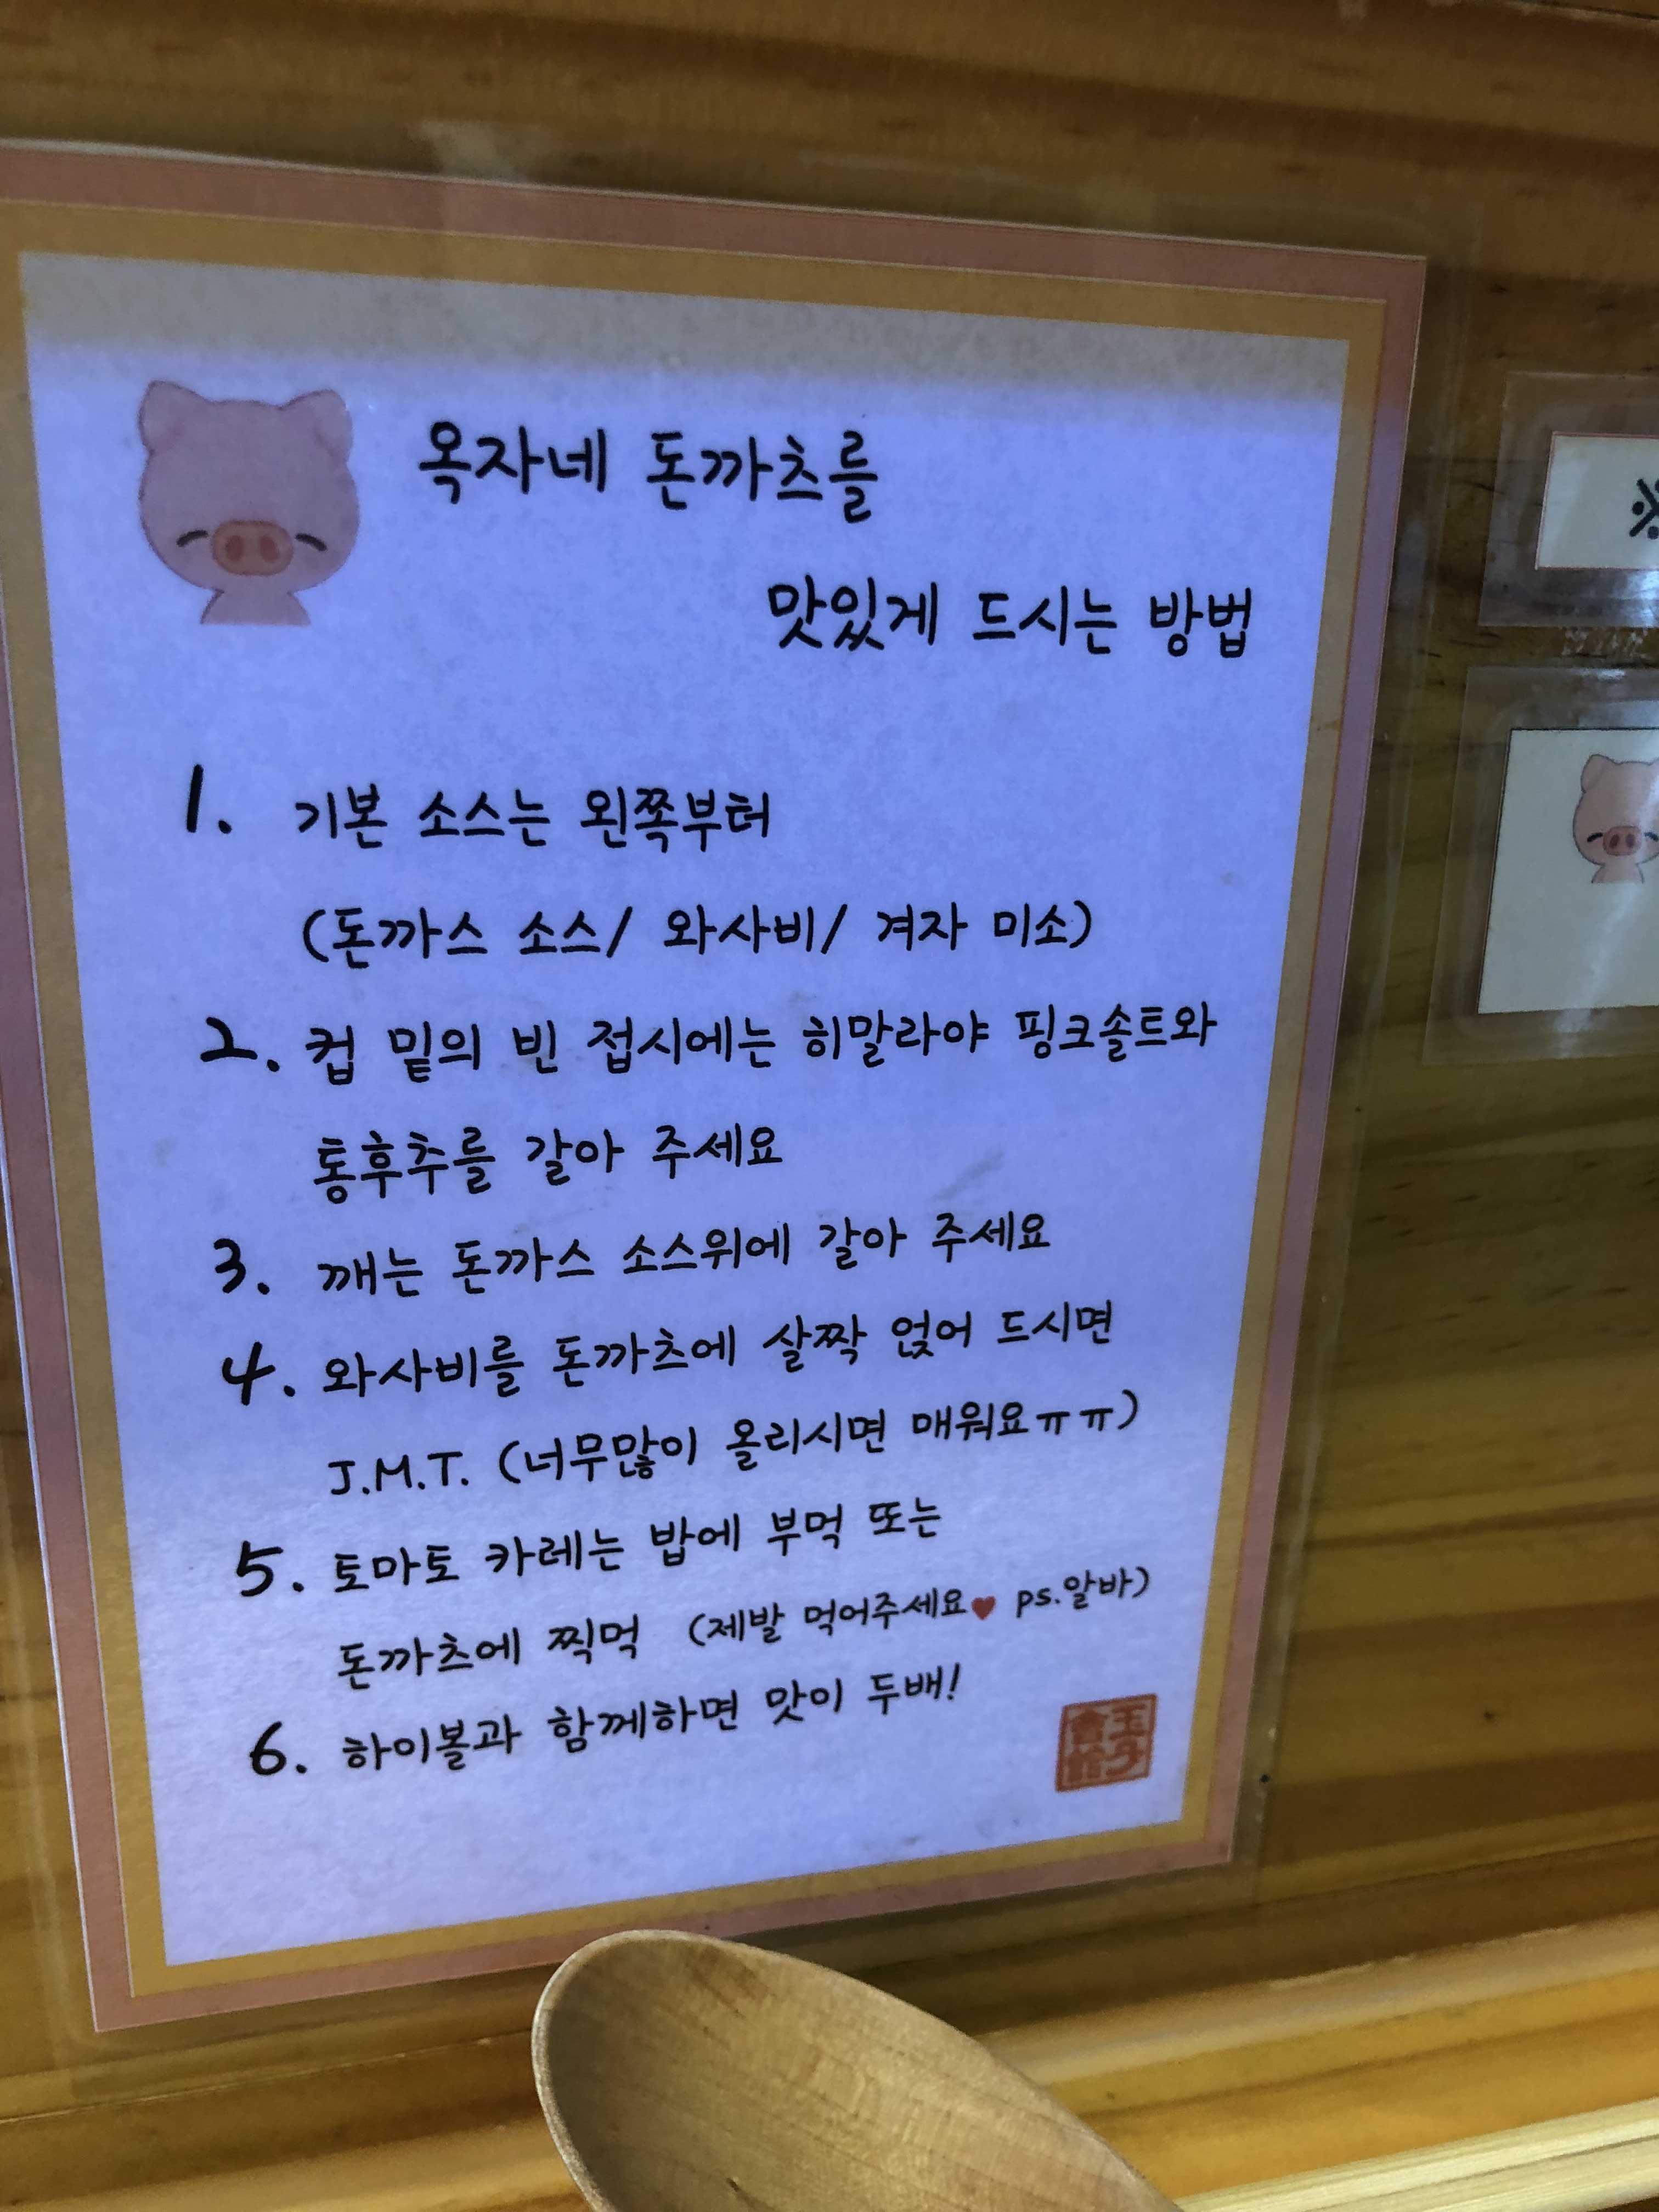 옥자네 돈까츠를
맛있게 드시는 방법
1. 기본 소스는 왼쪽부터
(돈까스 소스/ 와사비/ 겨자 미소)
2. 컵 밑의 빈 접시에는 히말라야 핑크솔트와
통후추를 갈아 주세요
3. 깨는 돈까스 소스위에 갈아 주세요
4. 와사비를 돈까츠에 살짝 얹어 드시면
J.M.T. (너무많이 올리시면 매워요ㅠㅠ)
5. 토마토 카레는 밥에 부먹 또는
돈까츠에 찍먹 (제발 먹어주세요♥ ps.알바)
6. 하이볼과 함께하면 맛이 두배!
※